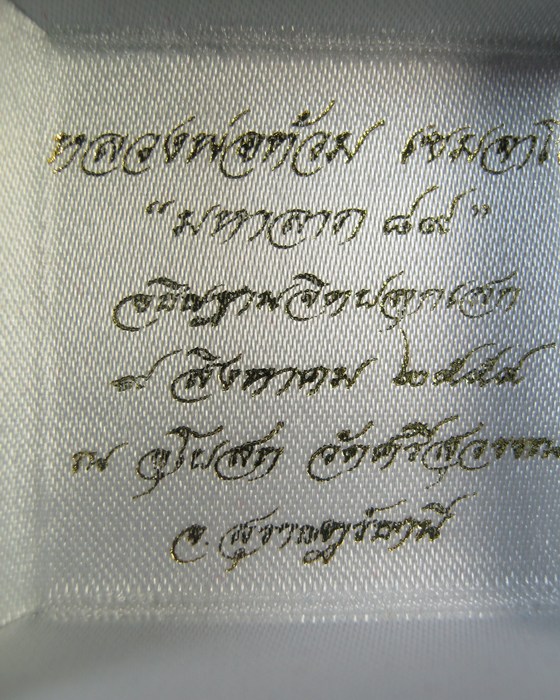 หลวงพ่อท้วม เขมจาโ
"มหาลาภ ๘๙"
อธิษฐานจิตปลุกเสก
๙ สิงหาคม ๒๕๕๕
ณ อุโบสถ วัดศรีสุวรรณ
จ. สุราษฎร์ธานี